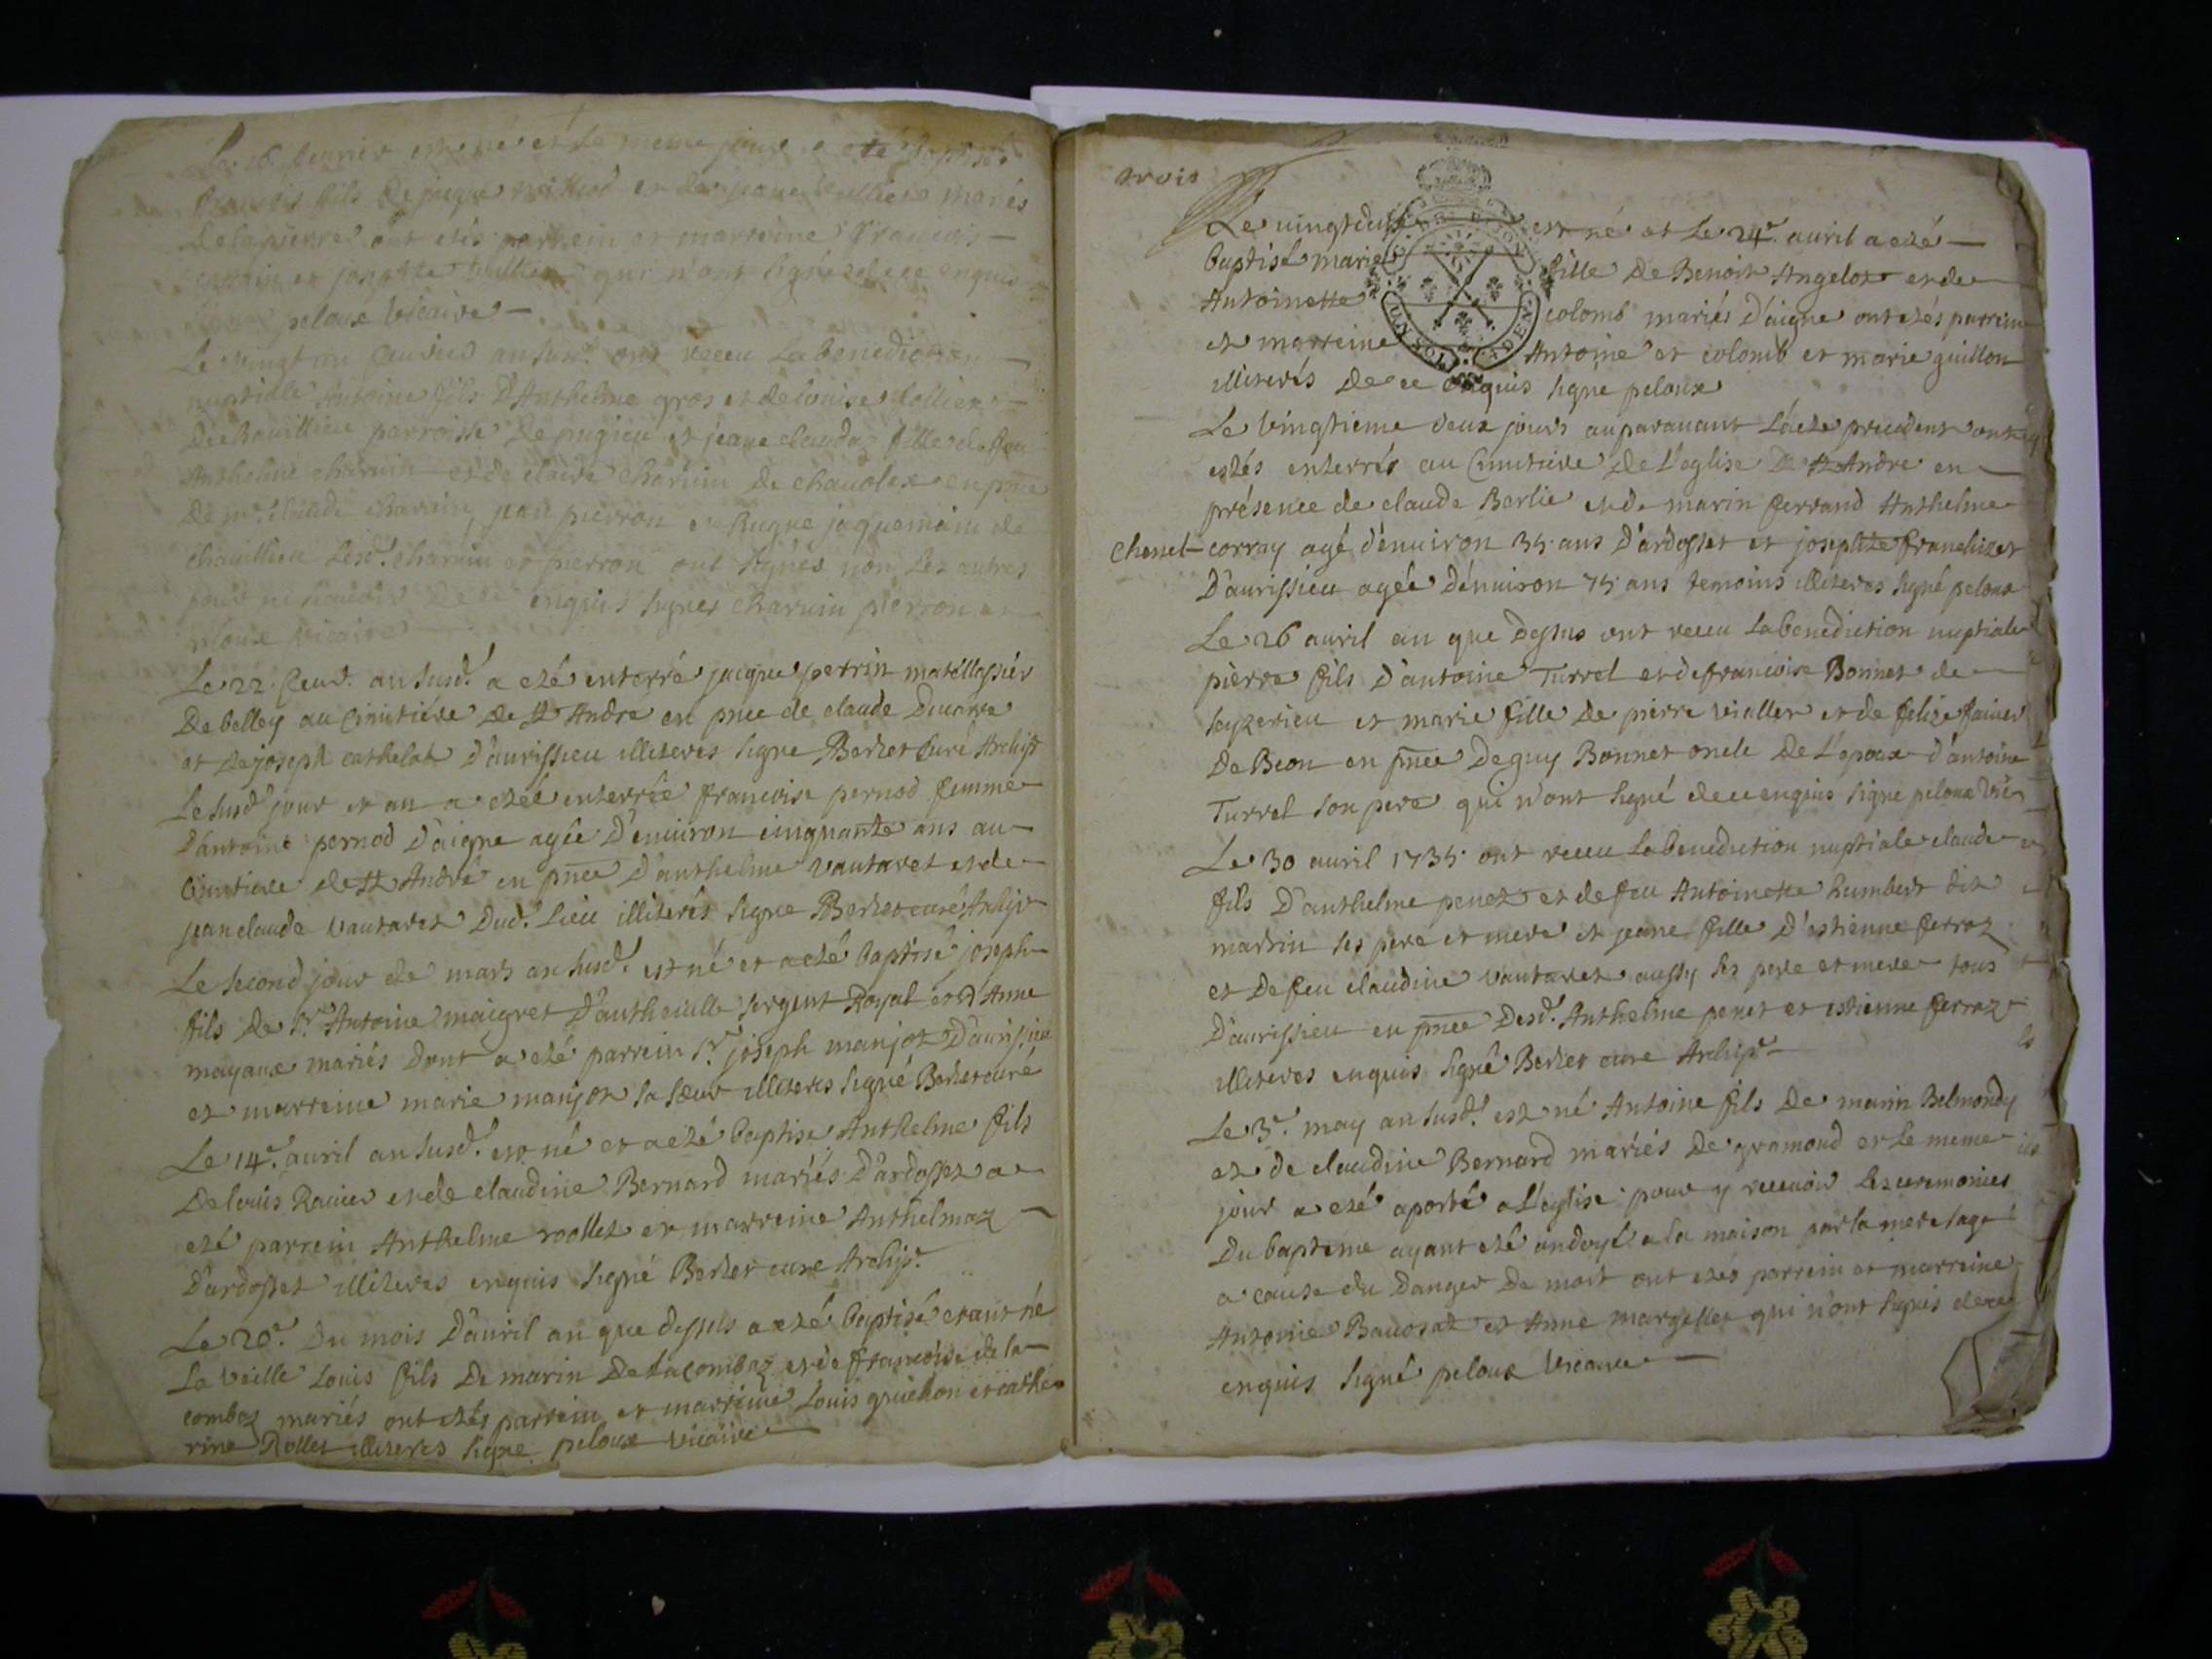 Le 16 feurier est né et le meme jour a été baptisé
françois fils de jaque et de jeane mariés
de lapierre ont etés parrein et marreine François
et qui n'ont signé de ce enquis
peloux vicaire
Le vingt un feurier an susd. ont receu la benediction
nuptialle Antoine fils D'Anthelme gros et de louise
parroisse de pugieu et jeane claudaz fille de feu
Anthelme charuin et de claire charuin de chauolex en pnce
de mr. claude charuin, jean pierron et hugue jaquemain de
lesd. charuin et pierron ont signés non les autres
pour ne scauoir de ce enquis signes charuin pierron et
peloux vicaire
Le 22 feur. an susd. a eté enterré jacque perrin matellassier
de belley au cimitiere de st Andre en pnce de claude Ducarre
et de joseph cathelat d'aurissieu illiteres signe Berliet curé Archipr
Le susd jour et an a etée enterrée francoise pernod femme
d'antoine pernod d'aigne agée d'enuiron cinquante ans au
cimitiere de st André en pnce d'anthelme vautaret et de
jean claude vautaret dud. lieu illiterés signe Berliet curé Archipr
Le second jour de mars an susd. est né et a eté baptisé joseph
fils de sr. Antoine maigret d'antheuille sergent Royal et d'Anne
mayaux mariés dont a eté parrein sr. joseph manjot d'aurissieu
et marreine marie manjot sa sœur illiteres signé Berliet curé
Le 14e. auril an susd. est né et a eté baptisé Anthelme fils
de louis Rauier et de claudine Bernard mariés d'ardosset a
eté parrein Anthelme roollet et marreine Anthelmaz
d'ardosset illiteres enquis signé Berliet curé Archipr.
Le 20e. du mois d'auril an que dessus a eté baptisé etant né
la veille Louis fils de marin de lacombaz et de francoise de la
combaz mariés ont etés parrein et marreine Louis guillon et cathe
rine Rollet illiteres signe peloux vicaire
trois
Le uingtdeux est né et le 24e. auril a eté
baptisé marie fille de Benoit Angelot et de
Antoinette colomb mariés d'aigne ont etés parrein
et marreine Antoine et colomb et marie guillon
illiterés de ce enquis signe peloux
Le vingtieme deux jours auparauant l'acte precedent ont
estés enterrés au cimitiere de l'eglise de st Andre en
présence de claude Berlie et de marin ferrand Anthelme
chenet corray agé d'enuiron 35 ans d'ardosset et josephte franchizet
d'aurissieu agée d'enuiron 75 ans temoins illiteres signé peloux
Le 26 auril an que dessus ont receu la benediction nuptiale
pierre fils d'antoine Turrel et de francoise Bonnet de
seyzerieu et marie fille de pierre viallet et de felize
de Beon en pnce de guy Bonnet oncle de l'epoux d'antoine
Turrel son pere qui n'ont signé de ce enquis signe peloux vic
Le 30 auril 1735 ont receu la benediction nuptiale claude
fils d'anthelme penet et de feu Antoinette humbert dit
martin ses pere et mere et jeane fille d'estienne ferraz
et de feu claudine vautaret aussy ses pere et mere tous
d'aurissieu en pnce desd. Anthelme penet et estienne ferraz
illiteres enquis signé Berliet curé Archipr
Le 3e. may an susd. est né Antoine fils de marin Belmondy
et de claudine Bernard mariés de gramond et le meme
jour a eté aporté a l'eglise pour y receuoir les ceremonies
du bapteme ayant eté ondoyé a la maison par la mere sage
a cause du danger de mort ont etes parrein et marreine
Antoine Bauosat et Anne margellet qui n'ont signés de ce
enquis signé peloux vicaire